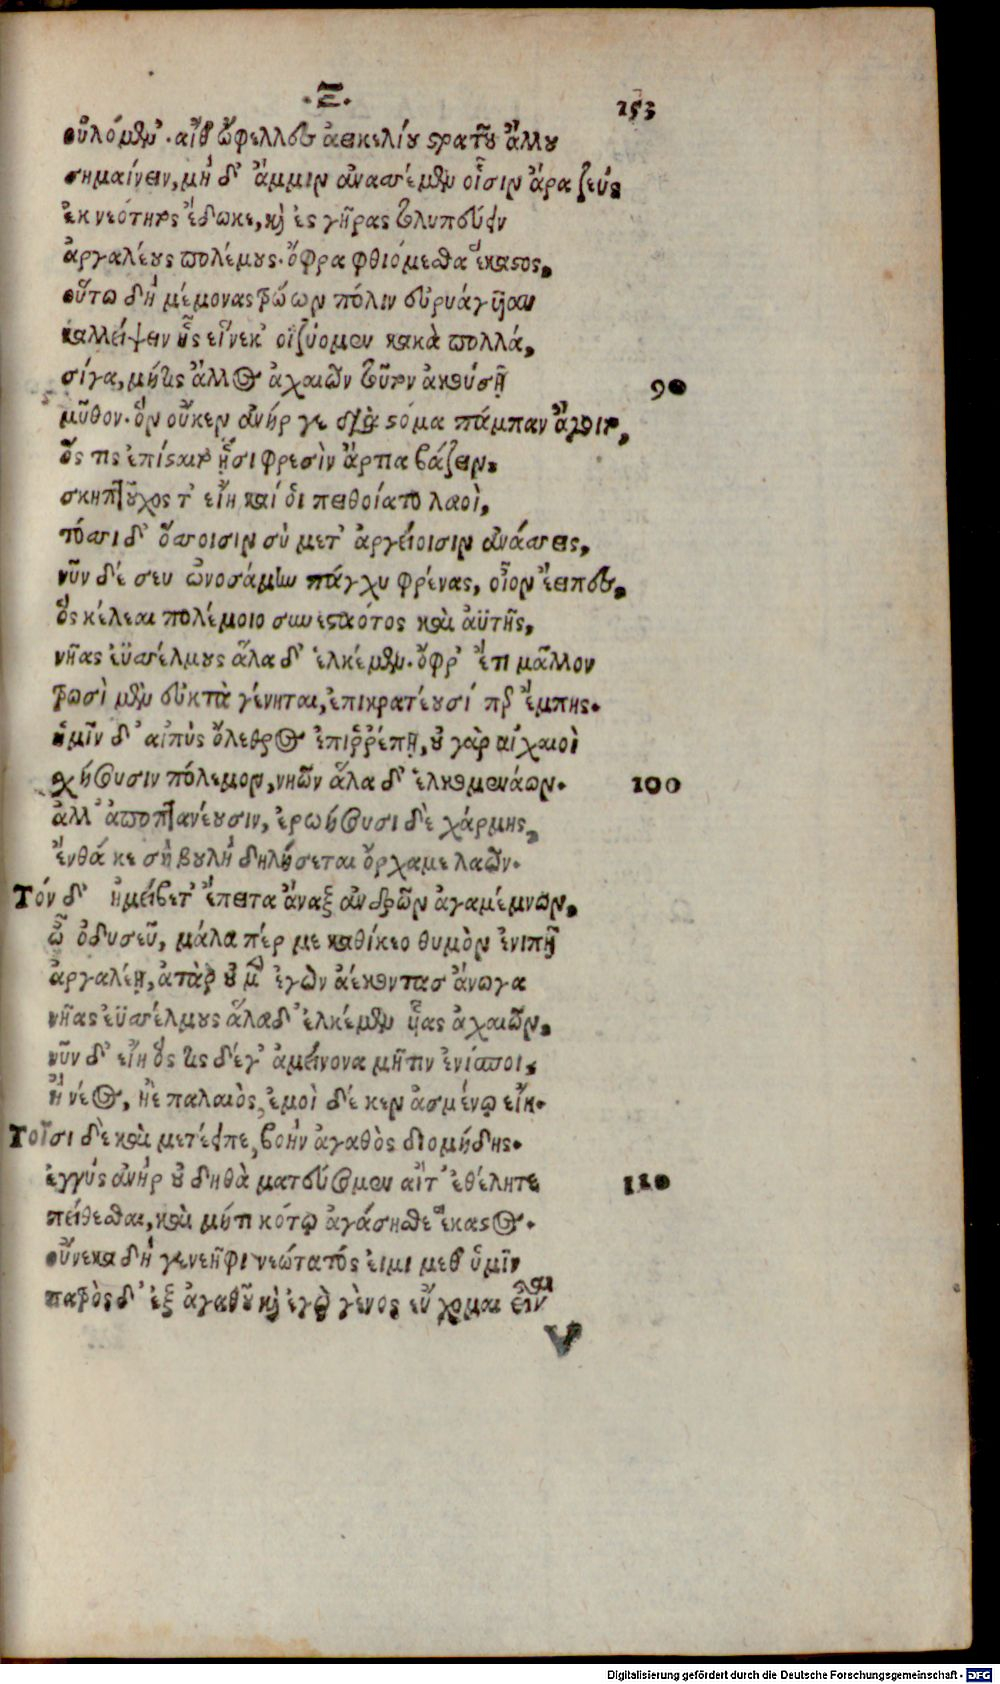 ·Ξ·
153
οὐλόμεν'· αἴθ' ὤφελλες ἀεικελίου στρατοῦ ἄλλου
σημαίνειν, μὴ δ' ἄμμιν ἀνασσέμεν οἷσιν ἄρα ζεὺς
ἐκ νεότητος ἔδωκε, καὶ ἐς γῆρας τολυπεύειν
ἀργαλέους πολέμους· ὄφρα φθιόμεσθα ἕκαστος.
οὕτω δὴ μέμονας τρώων πόλιν εὐρυάγυιαν
καλλείψειν ἧς εἵνεκ' οἰζύομεν κακὰ πολλά,
σίγα, μήτις ἄλλος ἀχαιῶν τοῦτον ἀκούσῃ 90
μῦθον· ὃν οὔκεν ἀνήρ γε διὰ στόμα πάμπαν ἄγοιτο,
ὅς τις ἐπίσταιτο ᾗσι φρεσὶν ἄρτια βάζειν.
σκηπτοῦχος τ' εἴη καί οἱ πειθοίατο λαοὶ,
τόσσι δ' ὅσσοισιν σὺ μετ' ἀργείοισιν ἀνάσσεις,
νῦν δέ σευ ὠνοσάμην πάγχυ φρένας, οἷον ἔειπες.
ὃς κέλεαι πολέμοιο συνεσταότος καὶ ἀϋτῆς,
νῆας ἐϋσσέλμους ἅλα δ' ἑλκέμεν· ὄφρ' ἔτι μᾶλλον
τρωσὶ μὲν εὐκτὰ γένηται, ἐπικρατέουσί περ ἔμπης.
ἡμῖν δ' αἰπὺς ὄλεθρος ἐπιῤῥέπῃ, οὐ γὰρ ἀχαιοὶ
σχήσουσιν πόλεμον, νηῶν ἅλα δ' ἑλκομενάων. 100
ἀλλ' ἀποπτανέουσιν, ἐρωήσουσι δὲ χάρμης,
ἔνθά κε σὴ βουλὴ δηλήσεται ὄρχαμε λαῶν.
Τόν δ' ἠμείβετ' ἔπειτα ἄναξ ἀνδρῶν ἀγαμέμνων,
ὦ ὀδυσεῦ, μάλα πέρ με καθίκεο θυμὸν ἐνιπῇ
ἀργαλέῃ, ἀτὰρ οὐ μὲν ἐγὼν ἀέκοντας ἄνωγα
νῆας ἐϋσσέλμους ἅλαδ' ἑλκέμεν ἷας ἀχαιῶν.
νῦν δ' εἴη ὅς τις δέγ' ἀμείνονα μῆτιν ἐνίσποι,
ἢ νέος, ἠὲ παλαιὸς, ἐμοὶ δέ κεν ἀσμένῳ εἴη.
Τοῖσι δὲ καὶ μετέειπε, βοὴν ἀγαθὸς διομήδης.
ἐγγὺς ἀνὴρ οὐ δηθὰ ματεύσομεν αἴτ' ἐθέλητε 110
πείθεσθαι, καὶ μήτι κότῳ ἀγάσησθε ἕκαστος.
οὕνεκα δὴ γενεῆφι νεώτατός εἰμι μεθ' ὑμῖν
πατρὸς δ' ἐξ ἀγαθοῦ καὶ ἐγὼ γένος εὔχομαι εἶναι
V
Digitalisierung gefördert durch die Deutsche Forschungsgemeinschaft - DFG